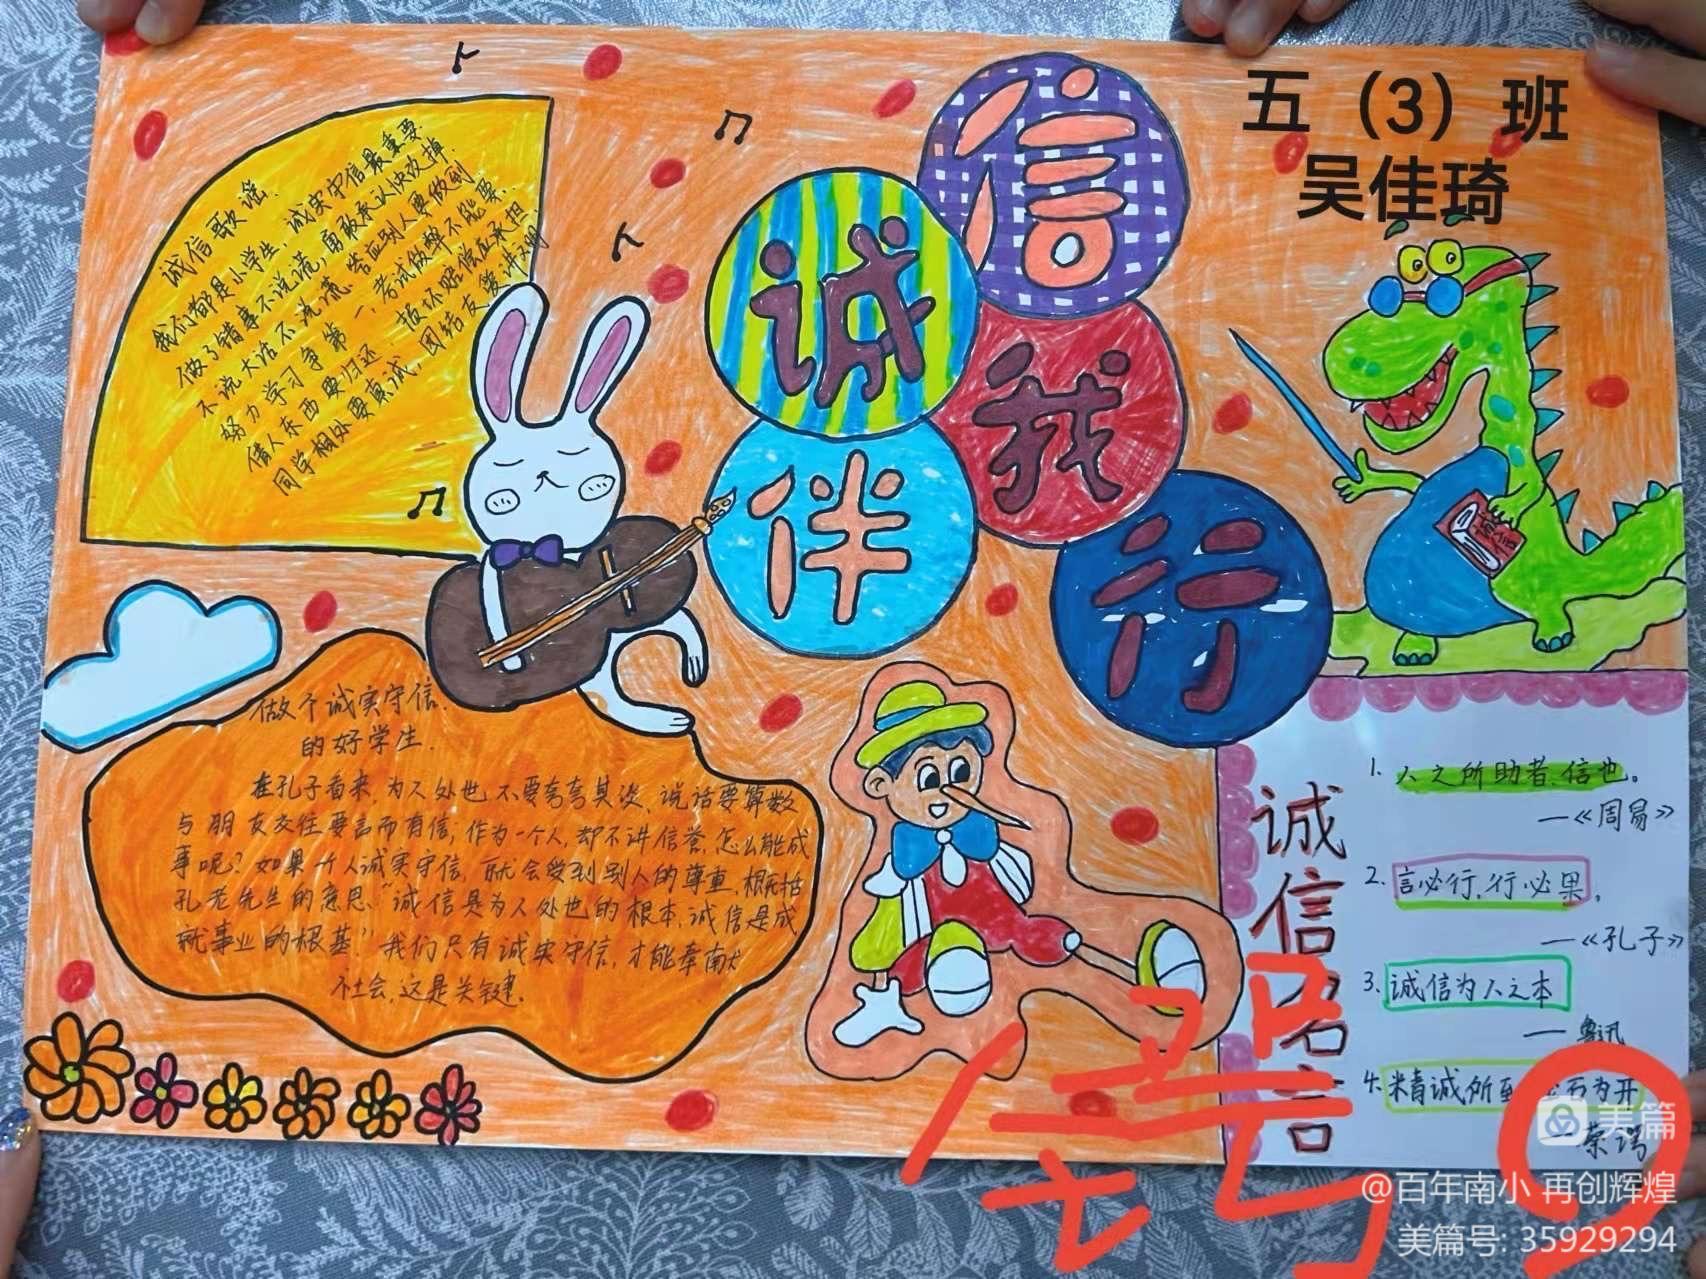 五（3）班
吴佳琦
诚信伴我行
诚信歌谣.
我们都是小学生，诚实守信最重要.
做了错事不说谎，勇敢承认快改掉.
不说大话不说谎、答应别人要做到
努力学习争第一，考试做弊不能要.
借人东西要归还 损坏赔偿应承担
同学相处要真诚，团结友爱讲文明
做个诚实守信.
的好学生.
在孔子看来，为人处世不要夸夸其谈、说话要算数
与朋友交往要言而有信；作为一个人，却不讲信誉，怎么能成
事呢？如果一个人诚实守信，就会受到别人的尊重，概括
孔老先生的意思、“诚信是为人处世的根本，诚信是成
就事业的根基”我们只有诚实守信，才能奉献
社会，这是关键.
诚信名言
1. 人之所助者，信也。
—《周易》
2. 言必行，行必果。
—《孔子》
3、诚信为人之本
— 鲁迅
4. 精诚所至 为开
美篇
@百年南小 再创辉煌
美篇号: 35929294